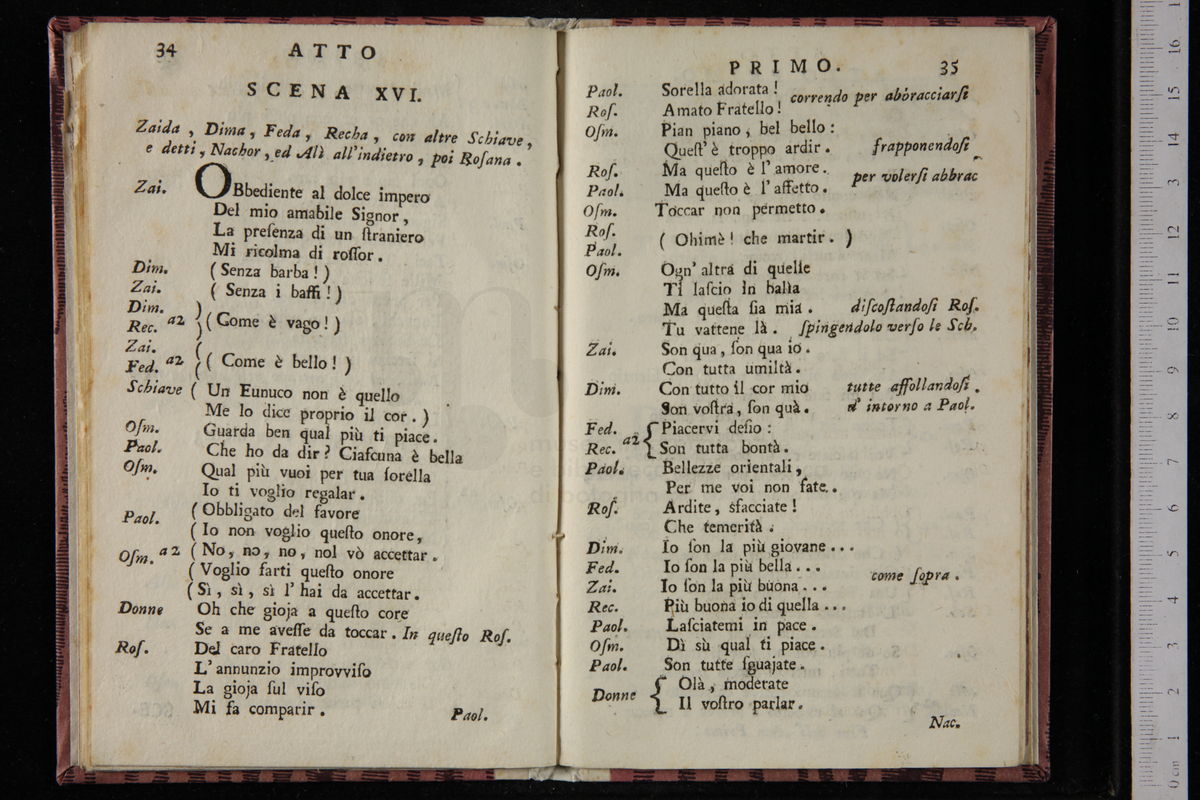 34 ATTO
SCENA XVI.
Zaida, Dima, Feda, Recha, con altre Schiave,
e detti, Nachor, ed Alì all'indietro, poi Roſana.
Zai. OBbediente al dolce impero
Del mio amabile Signor,
La preſenza di un ſtraniero
Mi ricolma di roſſor.
Dim. (Senza barba!)
Zai. (Senza i baffi!)
Dim.
Rec. a2 (Come è vago!)
Zai.
Fed. a2 (Come è bello!)
Schiave (Un Eunuco non è quello
Me lo dice proprio il cor.)
Oſm. Guarda ben qual più ti piace.
Paol. Che ho da dir? Ciaſcuna è bella
Oſm. Qual più vuoi per tua ſorella
Io ti voglio regalar.
Paol. (Obbligato del favore
(Io non voglio queſto onore,
a2 (No, no, no, nol vò accettar.
Oſm. (Voglio farti queſto onore
(Sì, sì, sì l'hai da accettar.
Donne Oh che gioja a queſto core
Se a me aveſſe da toccar. In queſto Roſ.
Roſ. Del caro Fratello
L'annunzio improvviſo
La gioja ſul viſo
Mi fa comparir.
Paol.
PRIMO. 35
Paol. Sorella adorata!
Roſ. Amato Fratello! correndo per abbracciarſi
Oſm. Pian piano, bel bello:
Queſt'è troppo ardir. frapponendoſi
Roſ. Ma queſto è l'amore.
Paol. Ma queſto è l'affetto. per volerſi abbrac
Oſm. Toccar non permetto.
Roſ.
Paol. (Ohimè! che martir.)
Oſm. Ogn'altra di quelle
Ti laſcio in balìa
Ma queſta ſia mia. diſcoſtandoſi Roſ.
Tu vattene là. ſpingendolo verſo le Sch.
Zai. Son qua, ſon qua io.
Con tutta umiltà.
Dim. Con tutto il cor mio tutte affollandoſi
Son voſtra, ſon quà. d'intorno a Paol.
Fed. Piacervi deſio:
Rec. a2 Son tutta bontà.
Paol. Bellezze orientali,
Per me voi non fate.
Roſ. Ardite, sfacciate!
Che temerità.
Dim. Io ſon la più giovane...
Fed. Io ſon la più bella...
Zai. Io ſon la più buona... come ſopra.
Rec. Più buona io di quella...
Paol. Laſciatemi in pace.
Oſm. Dì sù qual ti piace.
Paol. Son tutte ſguajate.
Donne Olà, moderate
Il voſtro parlar.
Nac.
0 cm 1 2 3 4 5 6 7 8 9 10 11 12 13 14 15 16